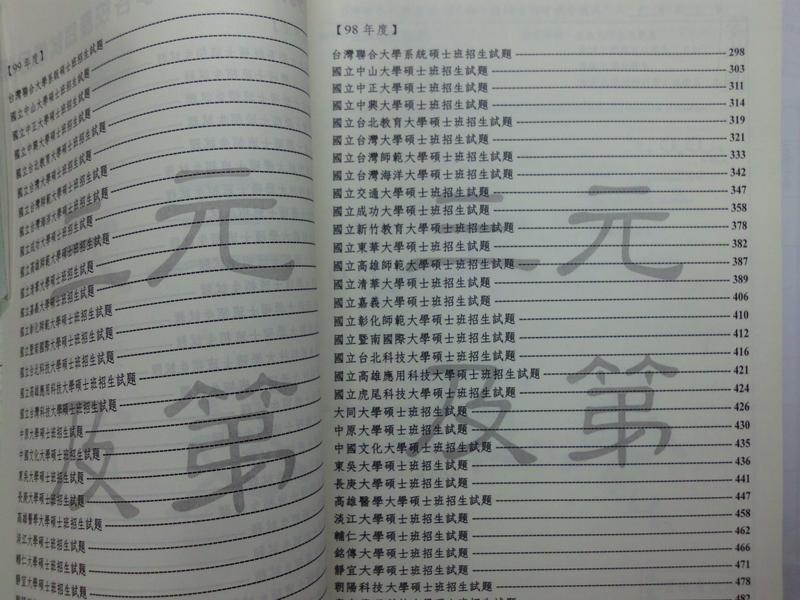 【99年度】
台灣聯合大學系統碩士班招生試題
國立中山大學碩士班招生試題
國立中正大學碩士班招生試題
國立中興大學碩士班招生試題
國立台北教育大學碩士班招生試題
國立台灣大學碩士班招生試題
國立台灣師範大學碩士班招生試題
國立台灣海洋大學碩士班招生試題
國立成功大學碩士班招生試題
國立高雄師範大學碩士班招生試題
國立清華大學碩士班招生試題
國立嘉義大學碩士班招生試題
國立彰化師範大學碩士班招生試題
國立暨南國際大學碩士班招生試題
國立台北科技大學碩士班招生試題
國立高雄應用科技大學碩士班招生試題
國立台灣科技大學碩士班招生試題
中原大學碩士班招生試題
中國文化大學碩士班招生試題
東吳大學碩士班招生試題
長庚大學碩士班招生試題
高雄醫學大學碩士班招生試題
淡江大學碩士班招生試題
輔仁大學碩士班招生試題
靜宜大學碩士班招生試題
【98年度】
台灣聯合大學系統碩士班招生試題 298
國立中山大學碩士班招生試題 303
國立中正大學碩士班招生試題 311
國立中興大學碩士班招生試題 314
國立台北教育大學碩士班招生試題 319
國立台灣大學碩士班招生試題 321
國立台灣師範大學碩士班招生試題 333
國立台灣海洋大學碩士班招生試題 342
國立交通大學碩士班招生試題 347
國立成功大學碩士班招生試題 358
國立新竹教育大學碩士班招生試題 378
國立東華大學碩士班招生試題 382
國立高雄師範大學碩士班招生試題 387
國立清華大學碩士班招生試題 389
國立嘉義大學碩士班招生試題 406
國立彰化師範大學碩士班招生試題 410
國立暨南國際大學碩士班招生試題 412
國立台北科技大學碩士班招生試題 416
國立高雄應用科技大學碩士班招生試題 421
國立虎尾科技大學碩士班招生試題 424
大同大學碩士班招生試題 426
中原大學碩士班招生試題 430
中國文化大學碩士班招生試題 435
東吳大學碩士班招生試題 436
長庚大學碩士班招生試題 441
高雄醫學大學碩士班招生試題 447
淡江大學碩士班招生試題 458
輔仁大學碩士班招生試題 462
銘傳大學碩士班招生試題 466
靜宜大學碩士班招生試題 471
朝陽科技大學碩士班招生試題 478
482
三元
及第
三元
及第